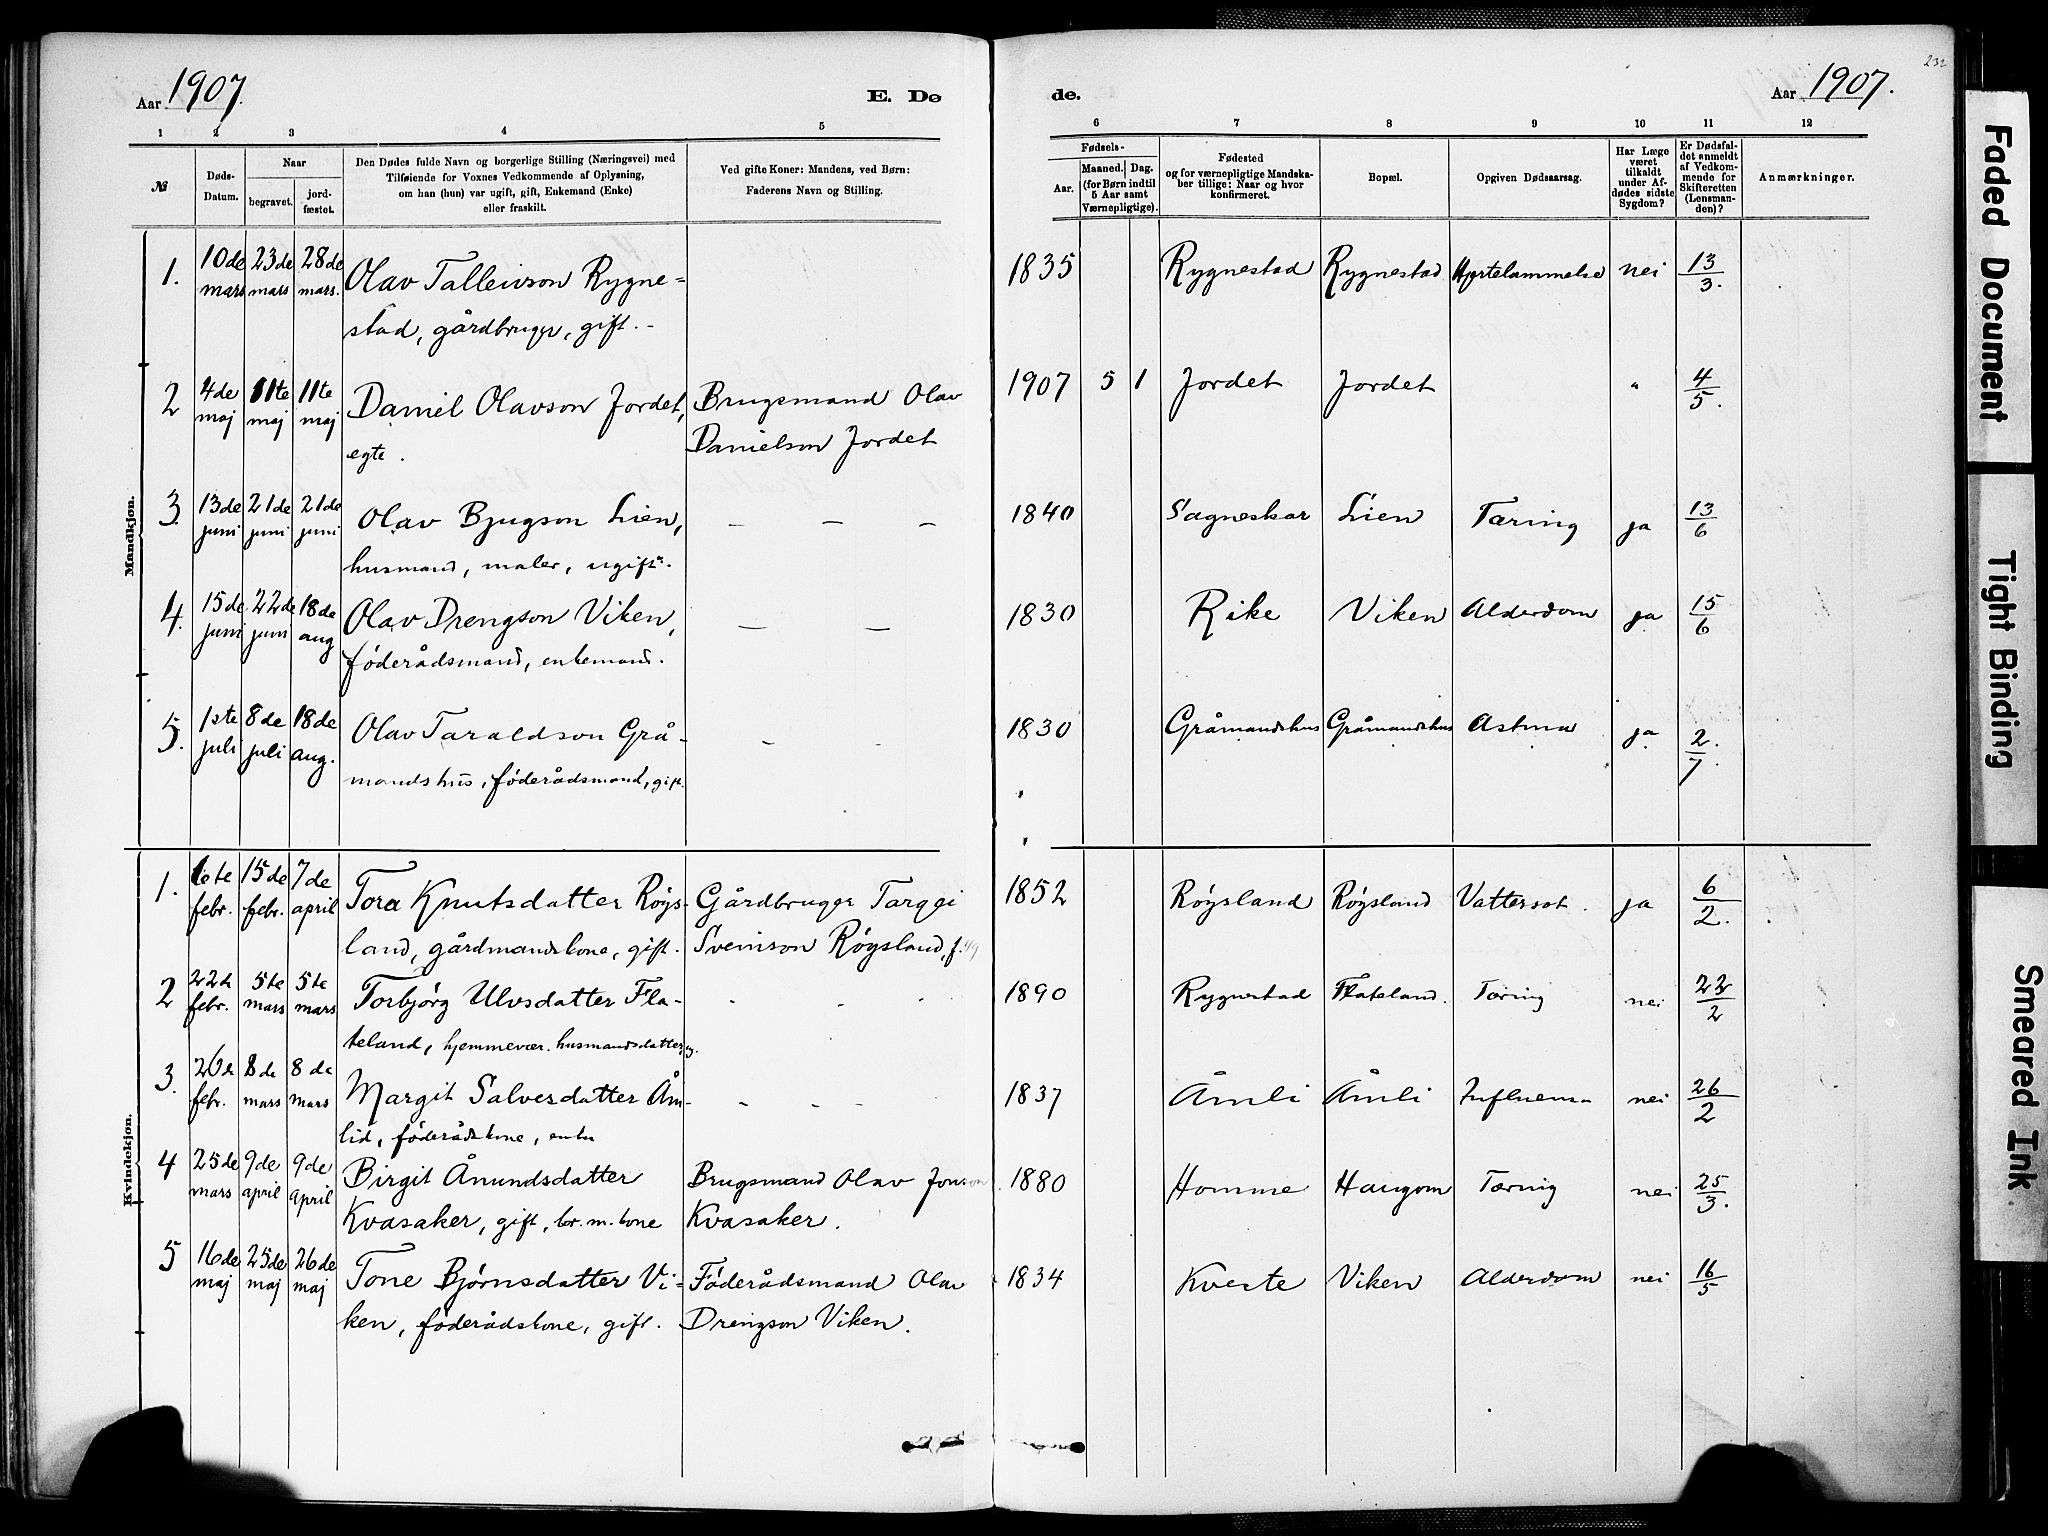 232
Aar 1907.
E. Dø
de.
Aar 1907.
1 2 3 4 5
6 7 8 9 10 11 12
№
Døds-
Datum.
Naar
begravet.
jord-
fæstet.
Den Dødes fulde Navn og borgerlige Stilling (Næringsvei) med
Tilføiende for Voxnes Vedkommende af Oplysning,
om han (hun) var ugift, gift, Enkemand (Enke)
eller fraskilt.
Ved gifte Koner: Mandens, ved Børn:
Faderens Navn og Stilling.
Fødsels-
Aar.
Maaned. Dag.
(for Børn indtil
5 Aar samt
Værnepligtige).
Fødested
og for værnepligtige Mandska-
ber tillige: Naar og hvor
konfirmeret.
Bopæl.
Opgiven Dødsaarsag.
Har Læge
været
tilkaldt
under Af-
dødes sidste
Sygdom?
Er Dødsfal-
det anmeldt
af Vedkom-
mende for
Skifteretten
(Lensman-
den)?
Anmærkninger.
Mandkjøn.
1. 10de mars 23de mars 28de mars. Olav Talleivson Rygne-
stad, gårdbruger, gift.-
1835 Rygnestad Rygnestad Hjertelammelse nei 13/3.
2 4de maj 11te maj 11te maj Daniel Olavson Jordet,
egte.
Brugsmand Olav
Danielson Jordet
1907 5 1 Jordet Jordet " 4/5.
3. 13de juni 21de juni 21de juni Olav Bjugson Lien, — — —
husmand, maler, ugift.
1840 Sagneskar Lien Tæring ja 13/6
4. 15de juni 22de juni 18de aug Olav Drengson Viken, — —
føderådsmand, enkemand.
1830 Rike Viken Alderdom ja 15/6
5. 1ste juli 8de juli 18de aug. Olav Taraldson Grå-
mandshus, føderådsmand, gift.
1830 Gråmandshus Gråmandshus Astma ja 2/7.
Kvindekjøn.
1. 6te febr. 15de febr. 7de april Tora Knutsdatter Røys-
land, gårdmandskone, gift.
Gårdbruger Targei
Sveinson Røysland, f. 49
1852 Røysland Røysland Vattersot. ja 6/2.
2 22de febr. 5te mars 5te mars Torbjørg Ulvsdatter Fla-
teland, hjemmevær. husmandsdatter, ug.
1890 Rygnestad Flateland. Tæring nei 22/2
3. 26de febr. 8de mars 8de mars Margit Salvesdatter Åm-
lid, føderådskone, enke
1837 Åmli Åmli Influensa nei 26/2
4 25de mars 9de april 9de april Birgit Ånundsdatter
Kvasaker, gift, br. m. kone
Brugsmand Olav Jonson
Kvasaker.
1880 Homme Haugom Tæring nei 25/3.
5 16de maj 25de maj 26de maj Tone Bjørnsdatter Vi-
ken, føderådskone, gift.
Føderådsmand Olav
Drengson Viken.
1834 Kveste Viken Alderdom nei 16/5
Faded Document
Tight Binding
Smeared Ink